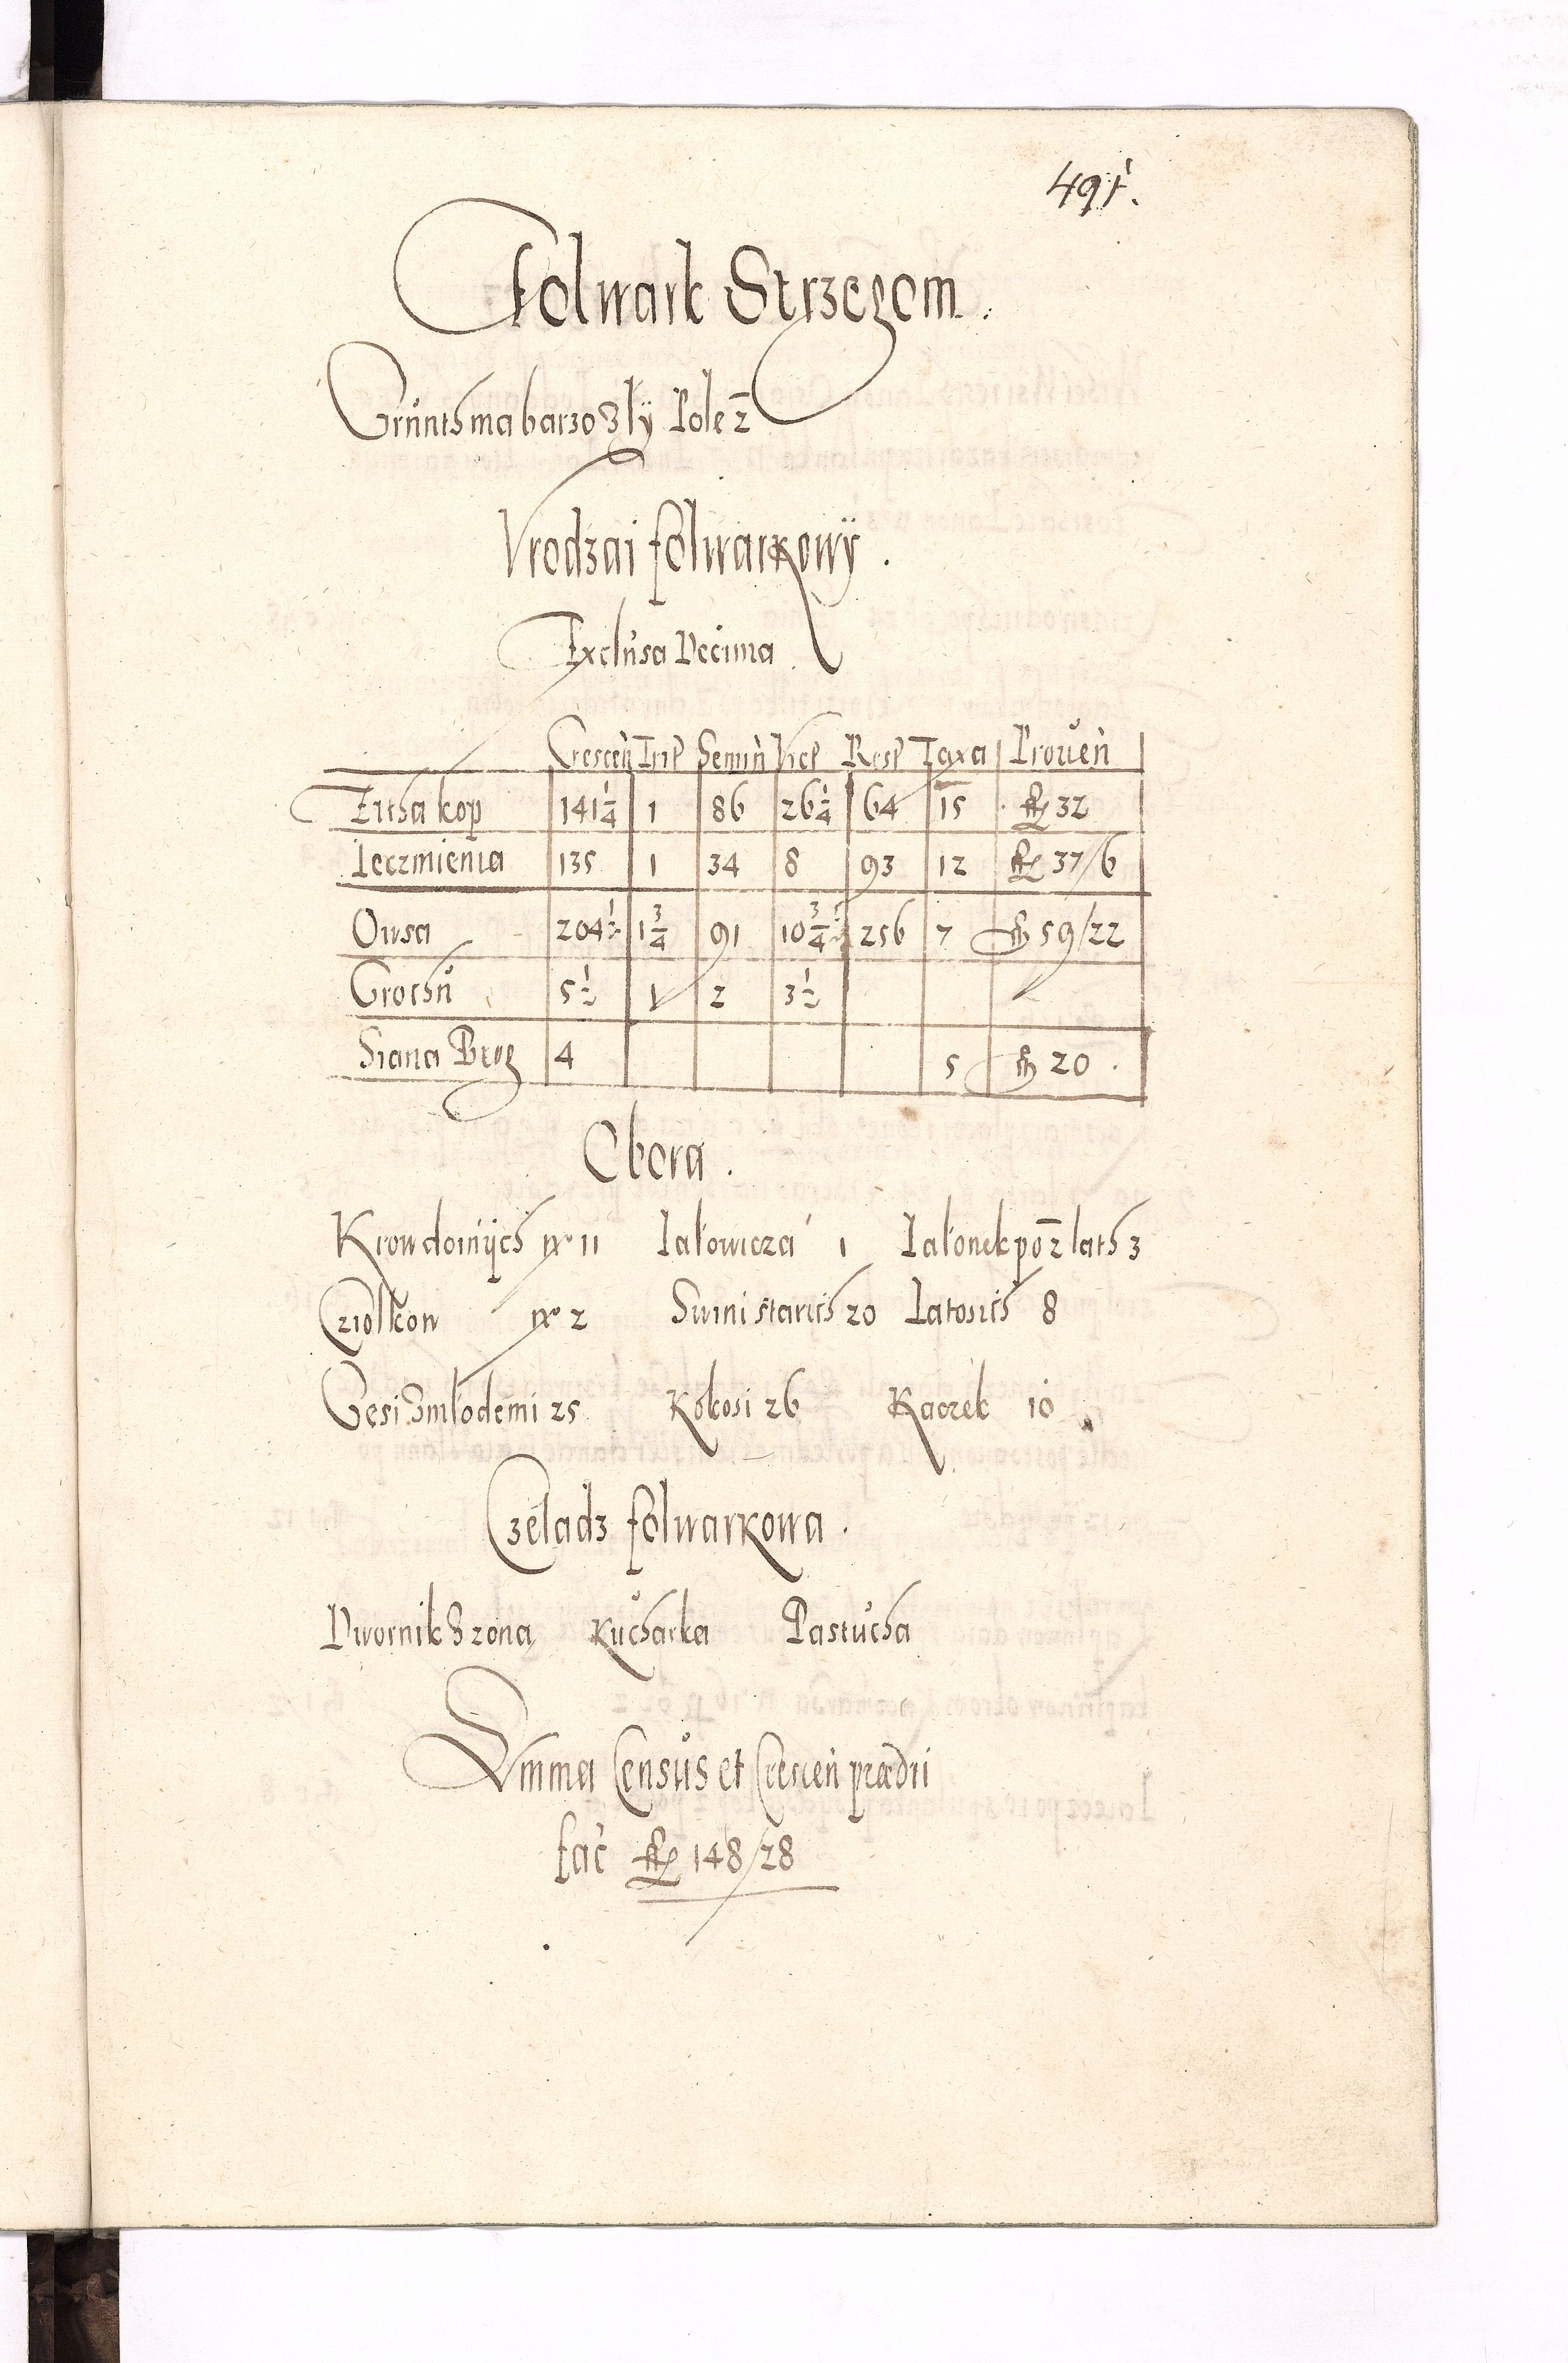 491.
Folwark Strzegom.
Grunth ma barzo Zlÿ Pole z
Vrodzai folwarkowÿ.
Exclusa Decima
Crescen Trit Semin Vict Rest Taxa Proven
Zitha kop 141¼ 1 86 26¼ 64 15 fl 32
Ieczmienia 135 1 34 8 93 12 fl 37/6
Owsa 204½ 1¾ 91 10¾ 256 7 fl 59/22
Grochu 5½ 1 2 3½
Siana Brog 4 5 fl 20.
Obora.
Krow doinÿch nro 11 Iałowicza 1 Iałonek po 2 lath 3
Cziołkow nro 2 Swini starich 20 Latosich 8
Gesi Zmłodemi 25 Kokosi 26 Kaczek 10
Czeladz folwarkowa.
Dwornik Szoną Kucharka Pastucha
Summa Census et Crescen prædii
fac fl 148/28